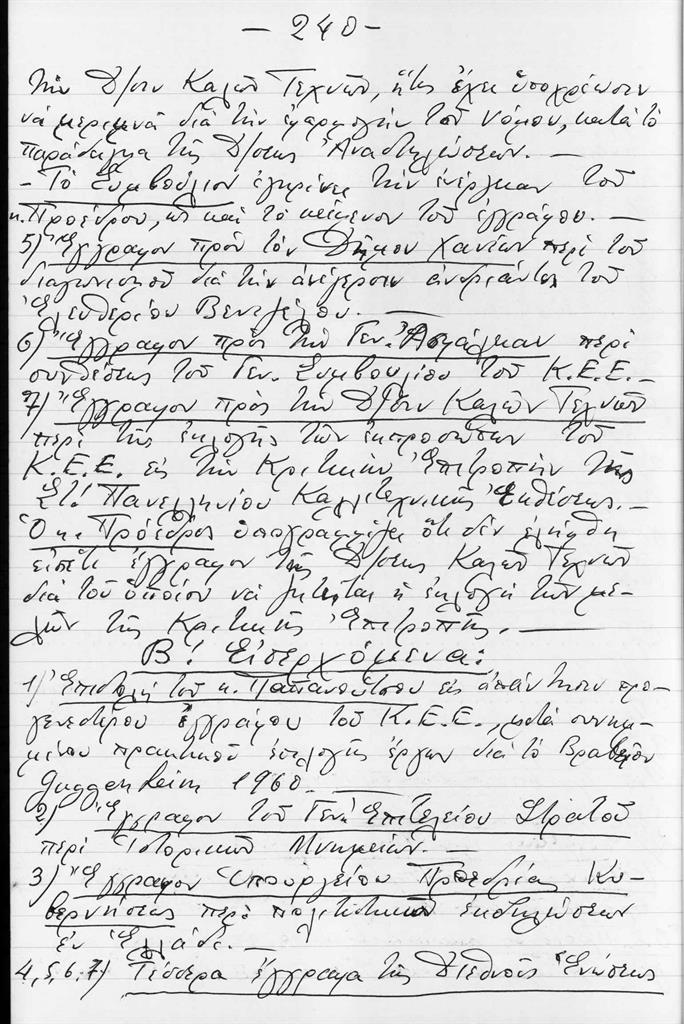 - 240 -
τὴν Δ/σιν Καλῶν Τεχνῶν, ἥτις ἔχει ὑποχρέωσιν
νά μεριμνᾷ διά τὴν ἐφαρμογὴν τοῦ νόμου, κατά τὸ
παράδειγμα τῆς Δ/σεως Ἀναστηλώσεων. —
- Τὸ Συμβούλιον ἐγκρίνει τὴν ἐνέργειαν τοῦ
κ. Προέδρου, ὡς καὶ τὸ κείμενον τοῦ ἐγγράφου. —
5) Ἔγγραφον πρὸς τὸν Δῆμον Χανίων περὶ τοῦ
διαγωνισμοῦ διά τὴν ἀνέγερσιν ἀνδριάντος τοῦ
Ἐλευθερίου Βενιζέλου. —
6) Ἔγγραφον πρὸς τὴν Γεν. Ἀσφάλειαν περὶ
συνθέσεως τοῦ Γεν. Συμβουλίου τοῦ Κ.Ε.Ε. —
7) Ἔγγραφον πρὸς τὴν Δ/σιν Καλῶν Τεχνῶν
περὶ τῆς ἐκλογῆς τῶν ἐκπροσώπων τοῦ
Κ.Ε.Ε. εἰς τὴν Κριτικὴν Ἐπιτροπὴν τῆς
ΣΤ! Πανελληνίου Καλλιτεχνικῆς Ἐκθέσεως. —
Ὁ κ. Πρόεδρος ὑπογραμμίζει ὅτι δὲν ἐλήφθη
εἰσέτι ἔγγραφον τῆς Δ/σεως Καλῶν Τεχνῶν
διά τοῦ ὁποίου νά ζητῆται ἡ ἐκλογὴ τῶν με-
λῶν τῆς Κριτικῆς Ἐπιτροπῆς. —
Β! Εἰσερχόμενα:
1) Ἐπιστολὴ τοῦ κ. Παπανούτσου εἰς ἀπάντησιν προ-
γενεστέρου ἐγγράφου τοῦ Κ.Ε.Ε., μετά συνημ-
μένου πρακτικοῦ ἐπιλογῆς ἔργων διά τὸ Βραβεῖον
Guggenheim 1960. —
2) Ἔγγραφον τοῦ Γεν. Ἐπιτελείου Στρατοῦ
περὶ Ἱστορικῶν Μνημείων. —
3) Ἔγγραφον Ὑπουργείου Προεδρίας Κυ-
βερνήσεως περὶ πολιτιστικῶν ἐκδηλώσεων
ἐν Ἑλλάδι. —
4, 5, 6, 7) Τέσσερα ἔγγραφα τῆς Διεθνοῦς Ἑνώσεως